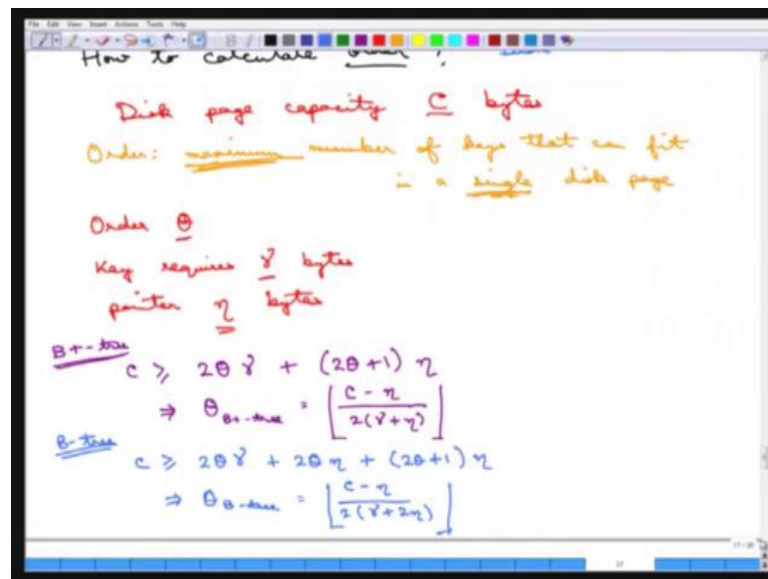 File Edit View Insert Actions Tools Help
How to calculate order ?
Disk page capacity C bytes
Order: maximum number of keys that can fit
in a single disk page
Order θ
Key requires γ bytes
pointer η bytes
B+-tree
C ≥ 2θγ + (2θ+1) η
⇒ θ B+-tree = ⌊ C - η / 2(γ+η) ⌋
B-tree
C ≥ 2θγ + 2θη + (2θ+1) η
⇒ θ B-tree = ⌊ C - η / 2(γ+2η) ⌋
17 / 20
17